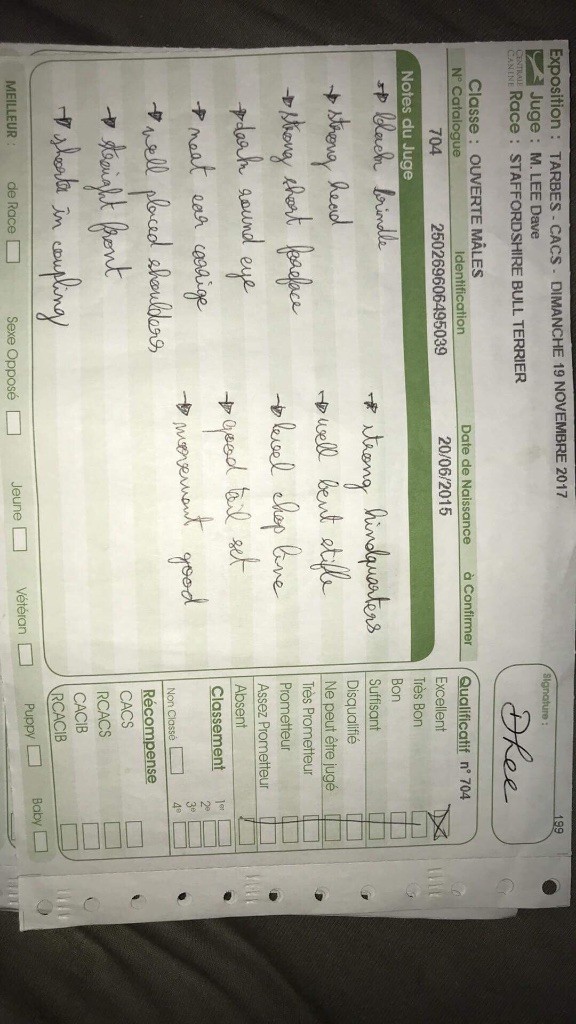 199
Exposition : TARBES - CACS - DIMANCHE 19 NOVEMBRE 2017
Juge : M. LEE Dave
CENTRALE CANINE
Race : STAFFORDSHIRE BULL TERRIER
Signature :
DLee
Classe : OUVERTE MÂLES
N° Catalogue Identification Date de Naissance à Confirmer
704 250269606495039 20/06/2015
Notes du Juge
→ black brindle
→ strong head
→ strong short foreface
→ dark round eye
→ neat ear carriage
→ well placed shoulders
→ straight front
→ shorts in coupling
→ strong hindquarters
→ well bent stifle
→ level top line
→ good tail set
→ movement good
Qualificatif n° 704
Excellent
Très Bon
Bon
Suffisant
Disqualifié
Ne peut être jugé
Très Prometteur
Prometteur
Assez Prometteur
Absent
Classement
1er
2e
3e
4e
Non Classé
Récompense
CACS
RCACS
CACIB
RCACIB
MEILLEUR : de Race Sexe Opposé Jeune Vétéran Puppy Baby